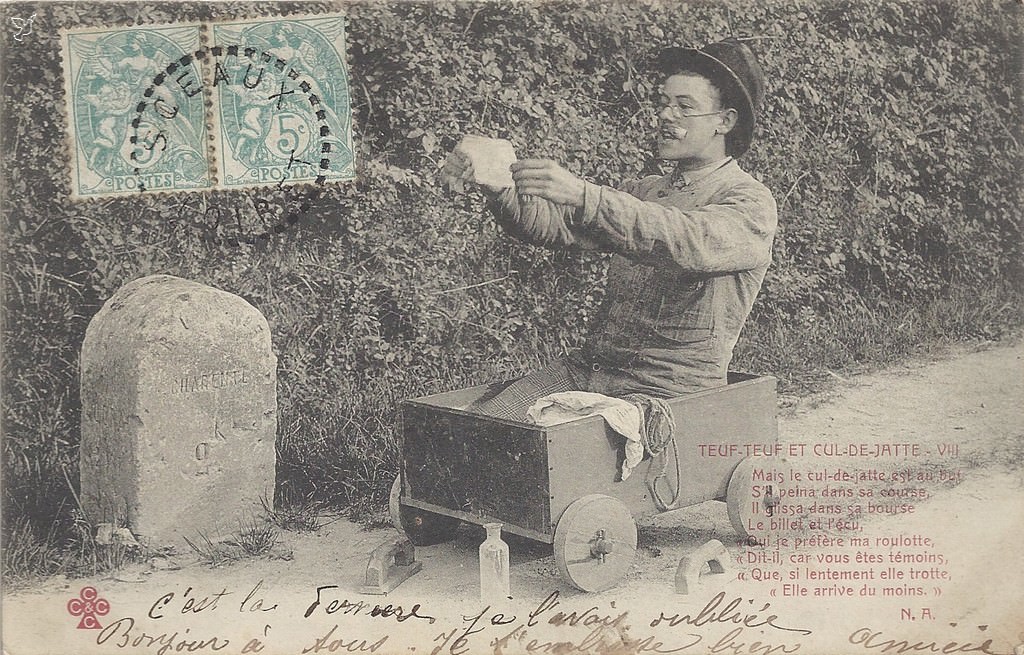 SCEAUX
5c 5c
POSTES POSTES
CHARENTE
9K
TEUF-TEUF ET CUL-DE-JATTE - VIII
Mais le cul-de-jatte est au but
S'il peina dans sa course,
Il glissa dans sa bourse
Le billet et l'écu,
« Qui je préfère ma roulotte,
« Dit-il, car vous êtes témoins,
« Que, si lentement elle trotte,
« Elle arrive du moins. »
N. A.
CCCC
c'est la dernière je l'avais oubliée
Bonjour à tous. Je t'embrasse bien